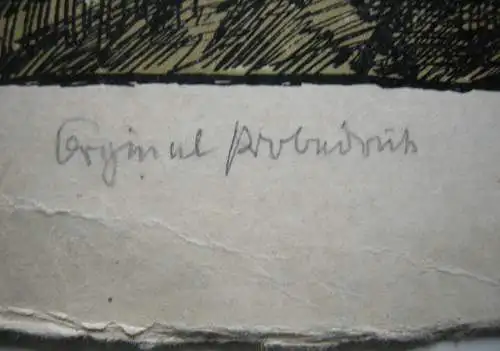 Orginal Probedruck